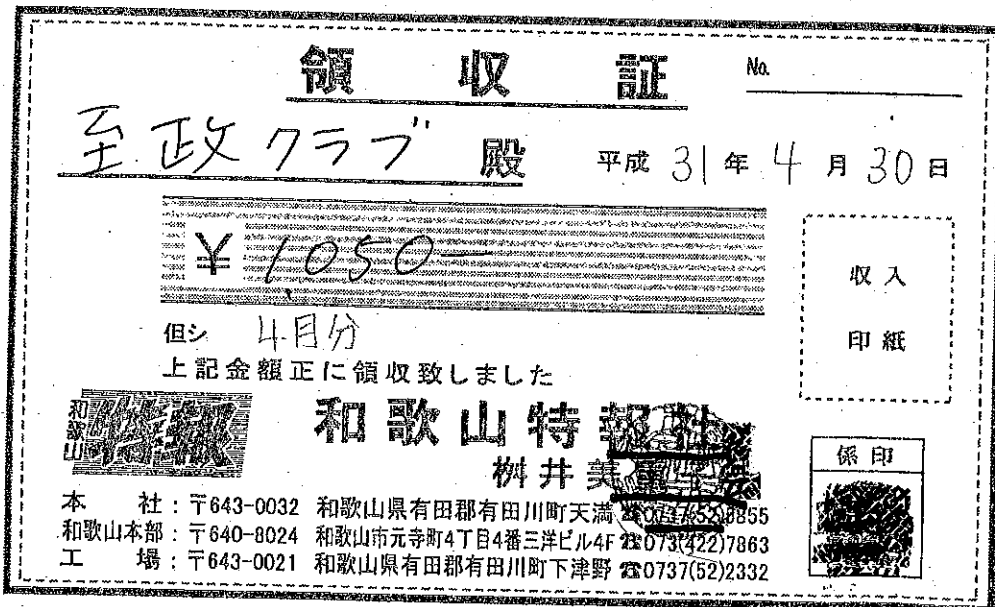 領収証 No.
至政クラブ 殿 平成 31年 4月 30日
¥ 1,050-
収入
印紙
但シ 4月分
上記金額正に領収致しました
和歌山特報
和歌山特報社
桝井美
係印
本社:〒643-0032 和歌山県有田郡有田川町天満 ☎0737(52)3855
和歌山本部:〒640-8024 和歌山市元寺町4丁目4番三洋ビル4F ☎073(422)7863
工場:〒643-0021 和歌山県有田郡有田川町下津野 ☎0737(52)2332